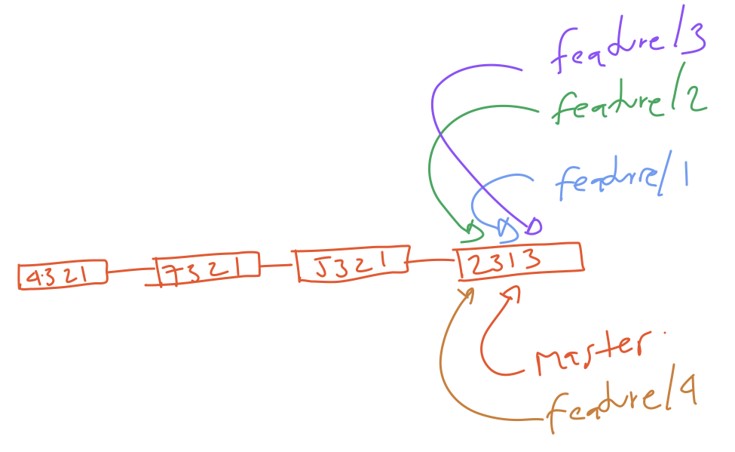 feature/3
feature/2
feature/1
4321
7321
5321
2313
Master
feature/4